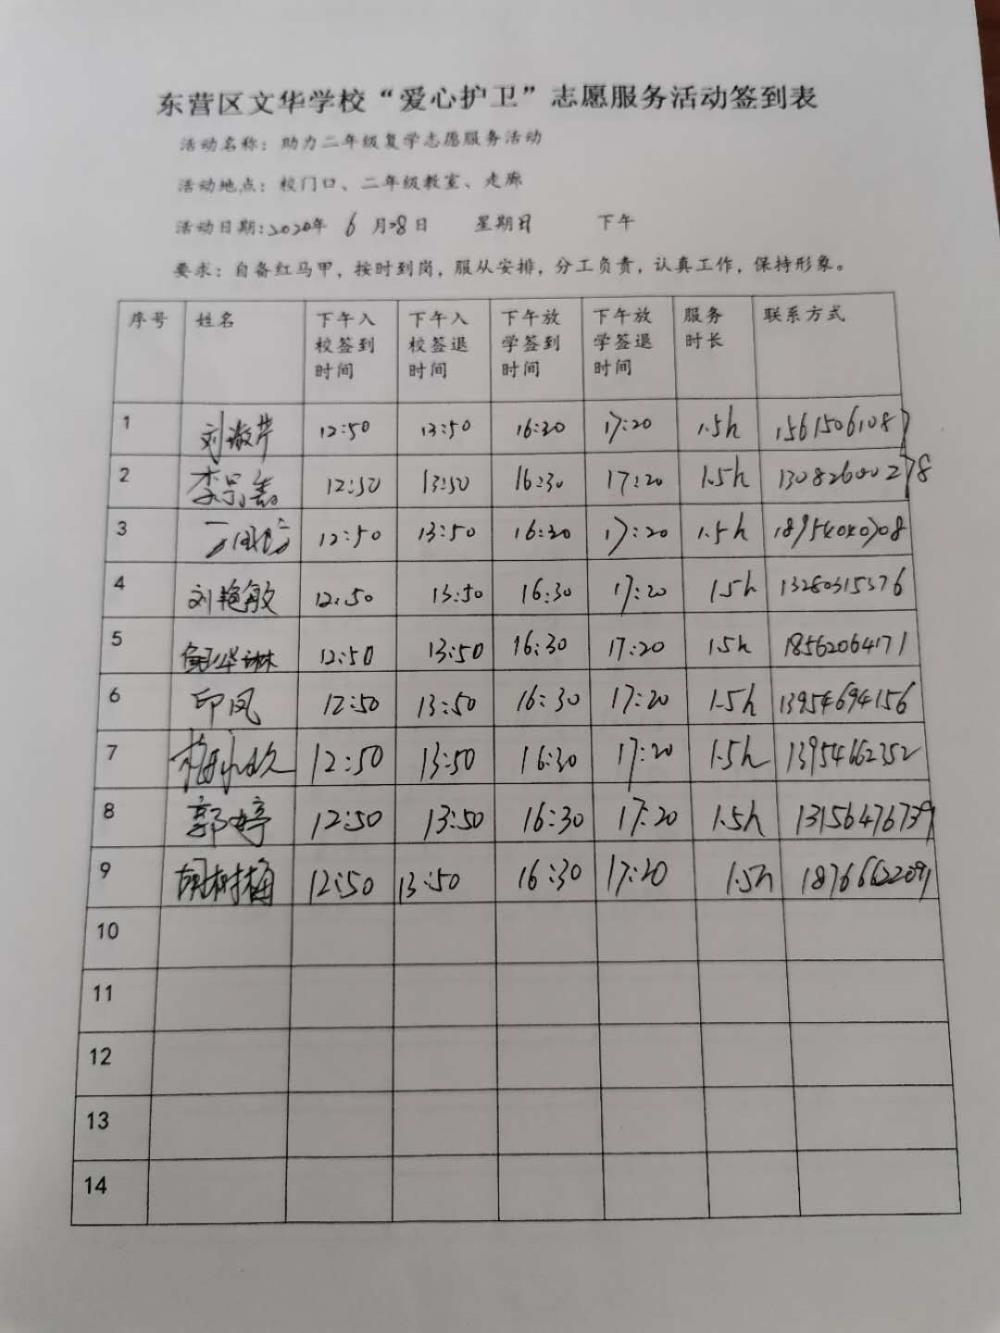 东营区文华学校“爱心护卫”志愿服务活动签到表
活动名称：助力二年级复学志愿服务活动
活动地点：校门口、二年级教室、走廊
活动日期:2020年 6 月28日 星期日 下午
要求：自备红马甲，按时到岗，服从安排，分工负责，认真工作，保持形象。
序号 姓名 下午入校签到时间 下午入校签退时间 下午放学签到时间 下午放学签退时间 服务时长 联系方式
1 刘淑芹 12:50 13:50 16:30 17:20 1.5h
2 12:50 13:50 16:30 17:20 1.5h 13082600278
3 12:50 13:50 16:30 17:20 1.5h
4 刘艳敏 12:50 13:50 16:30 17:20 1.5h 13280315376
5 12:50 13:50 16:30 17:20 1.5h 18562064171
6 印凤 12:50 13:50 16:30 17:20 1.5h 13954694156
7 12:50 13:50 16:30 17:20 1.5h 13954662352
8 郭婷 12:50 13:50 16:30 17:20 1.5h 13156476739
9 胡树梅 12:50 13:50 16:30 17:20 1.5h
10
11
12
13
14